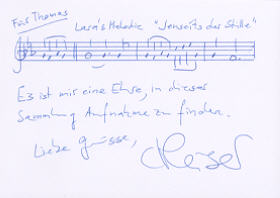 Für Thomas
Lara's Melodie "Jenseits der Stille"
Es ist mir eine Ehre, in dieser
Sammlung Aufnahme zu finden.
Liebe Grüsse,